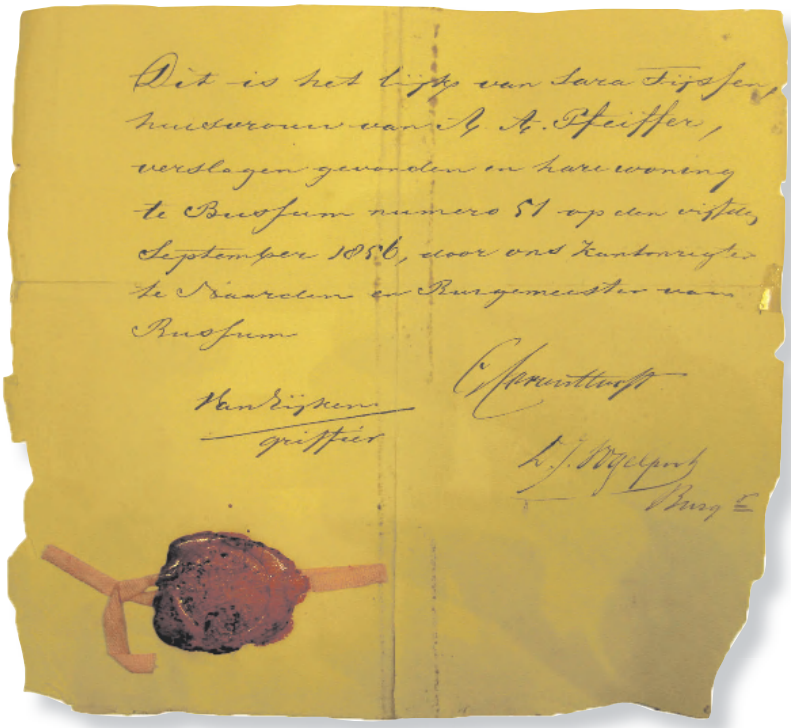 Dit is het lijk van Sara Tijssen,
huisvrouw van A. A. Pfeiffer,
verslagen gevonden in hare woning
te Bussum numero 51 op den vijfden
September 1856, door ons Kantonregter
te Naarden en Burgemeester van
Bussum
griffier
Burgr